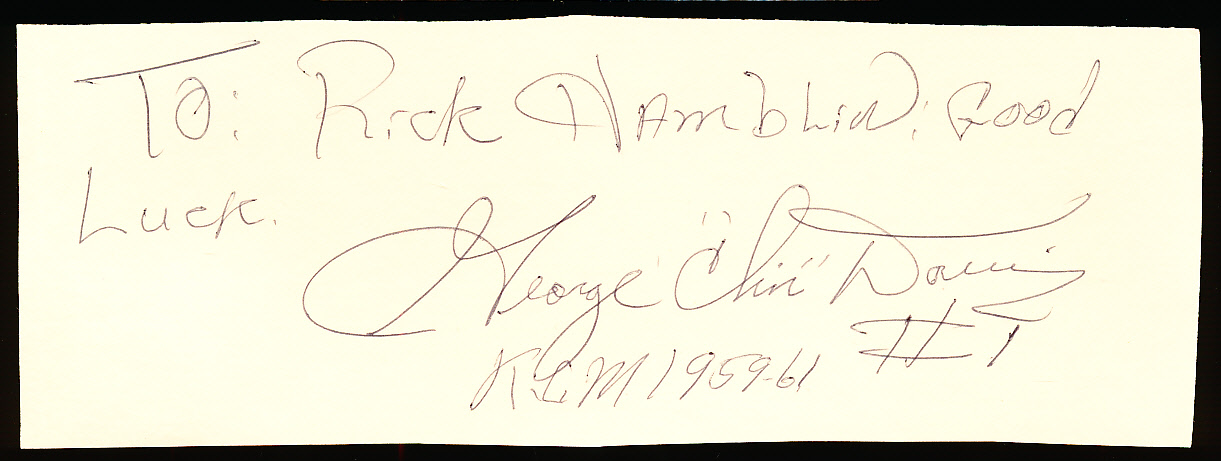 To: Rick Hamblin: Good
Luck.
George "Chin" Davis
# 1
KLM 1959-61